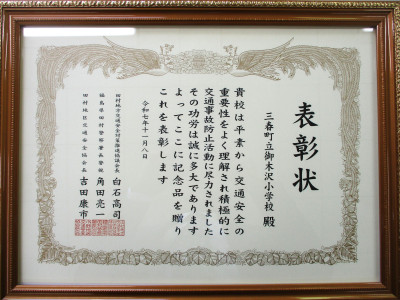 表彰状
三春町立御木沢小学校 殿
貴校は平素から交通安全の
重要性をよく理解され積極的に
交通事故防止活動に尽力されました
その功労は誠に多大であります
よってここに記念品を贈り
これを表彰します
令和七年十一月八日
田村地方交通安全対策推進協議会長 白石高司
福島県田村警察署長警視 角田亮一
田村地区交通安全協会長 吉田康市